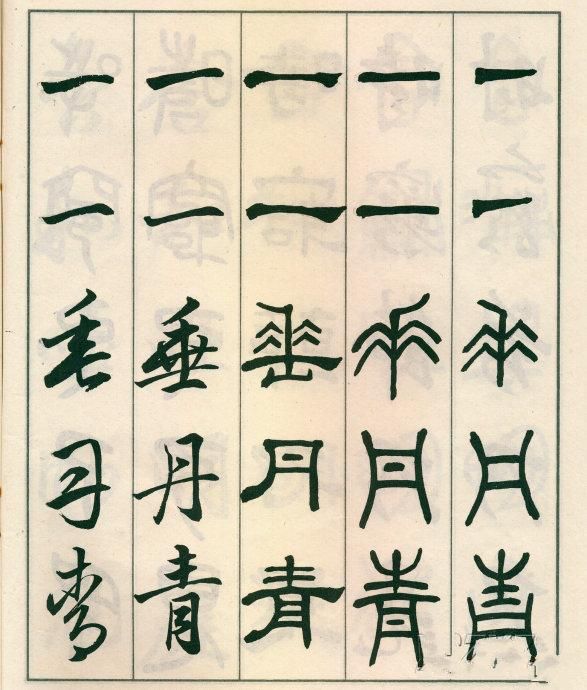 一一垂丹青
一一垂丹青
一一垂丹青
一一垂丹青
一一垂丹青